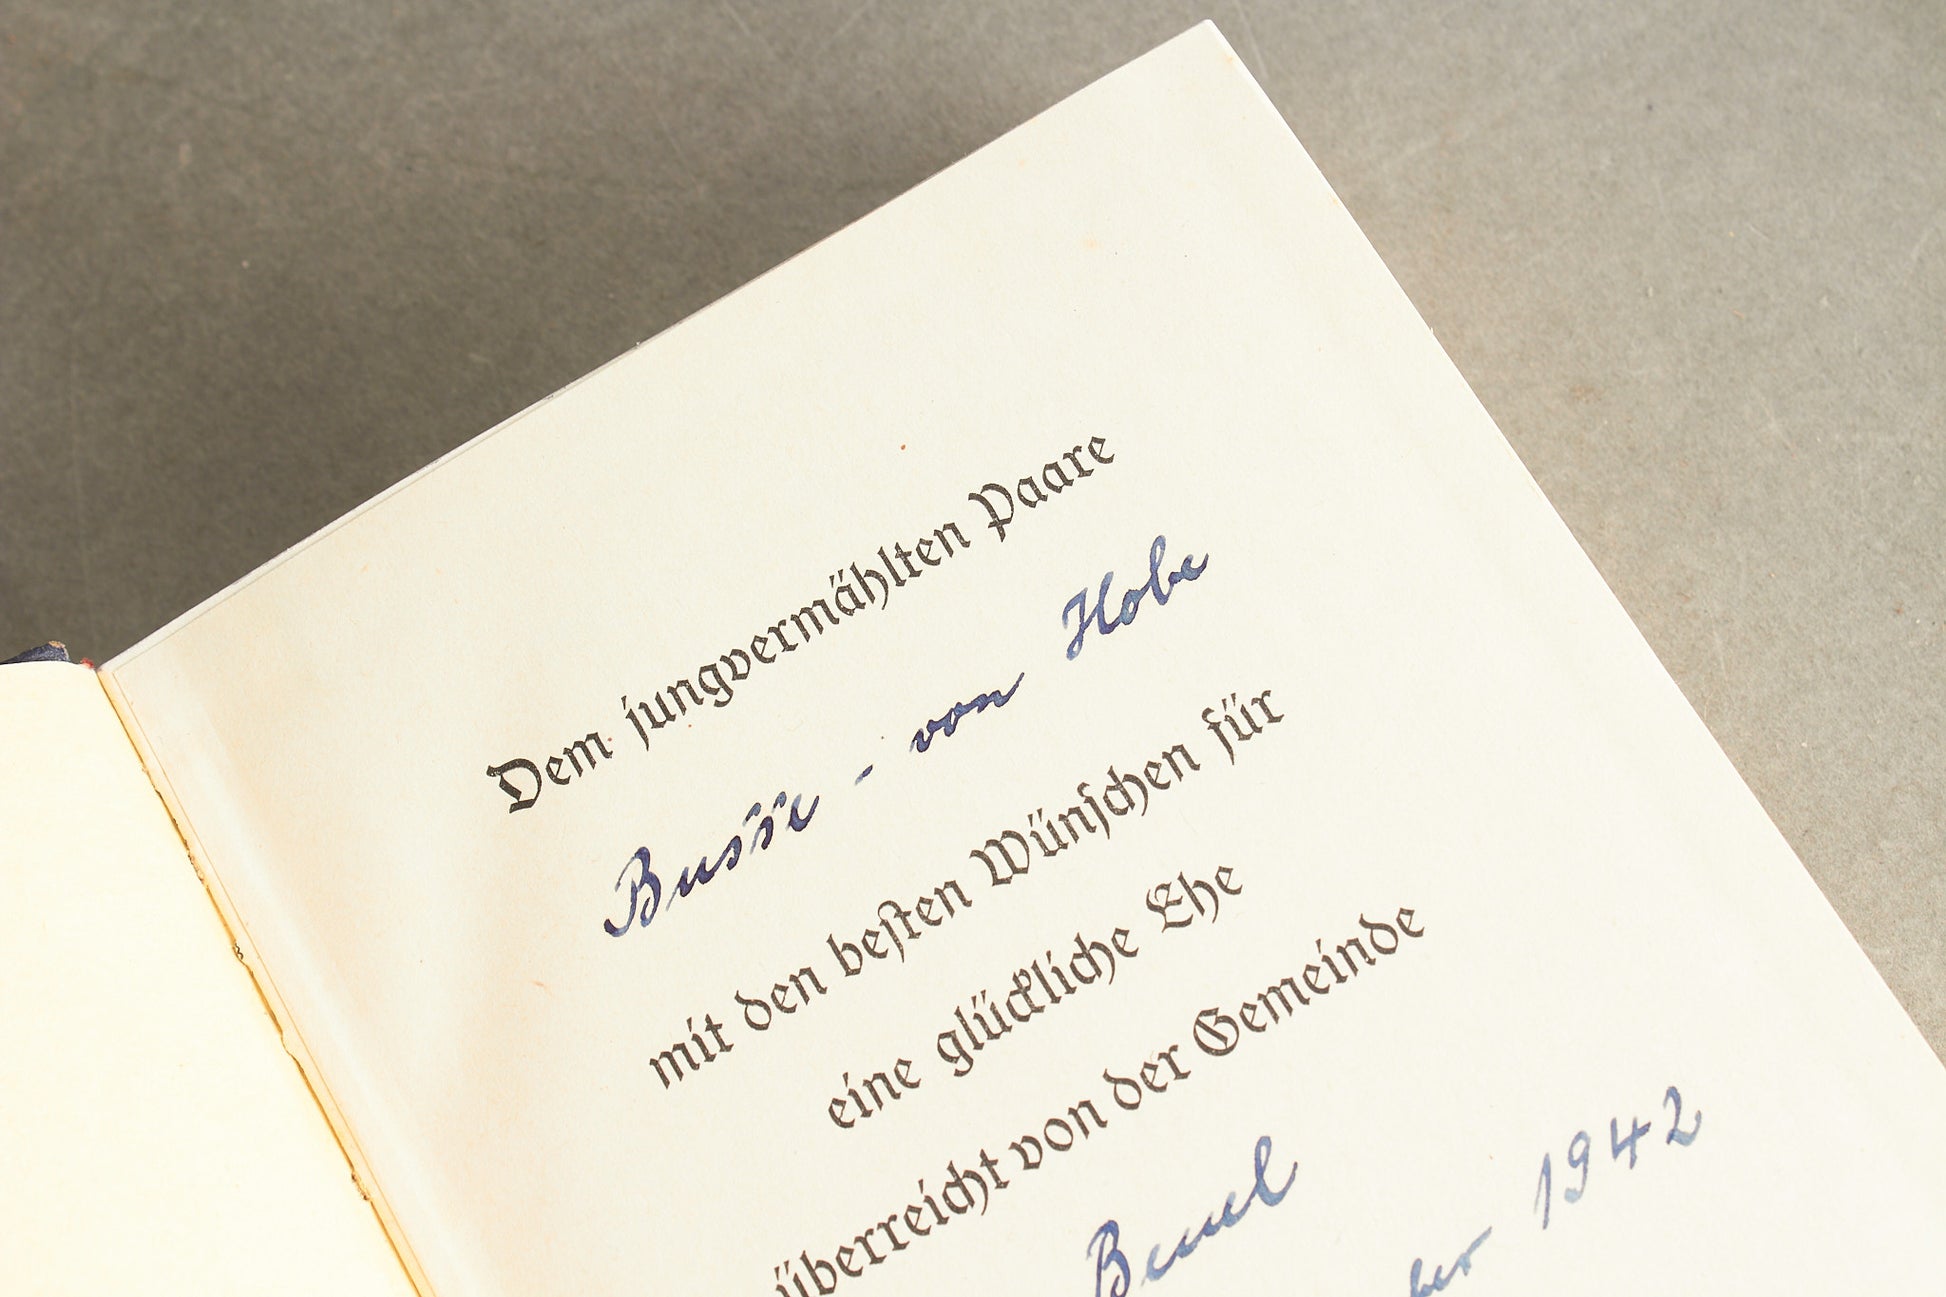 Dem jungvermählten Paare
Busse - von Hobe
mit den besten Wünschen für
eine glückliche Ehe
überreicht von der Gemeinde
Beuel
ber 1942